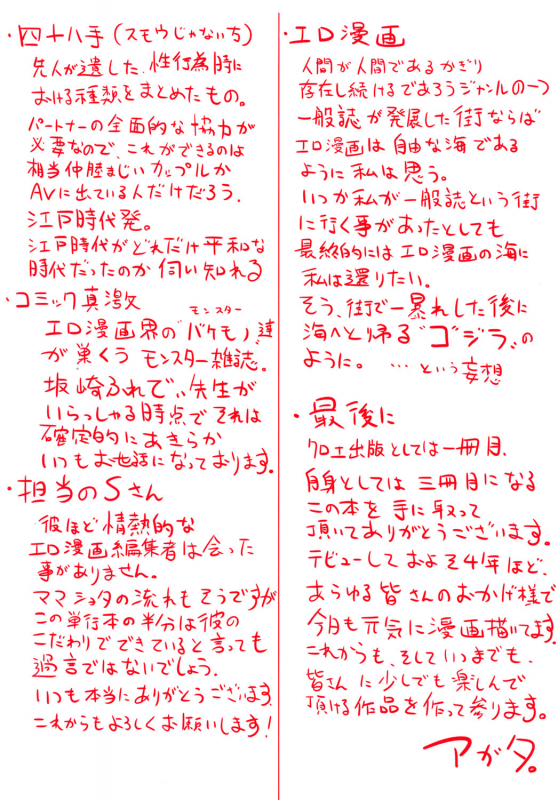 ・四十八手(スモウじゃないち)
先人が遺した、性行為時に
おける種類をまとめたもの。
パートナーの全面的な協力が
必要なので、これができるのは
相当仲睦まじいカップルか
AVに出ている人だけだろう。
江戸時代発。
江戸時代がどれだけ平和な
時代だったのか伺い知れる
・コミック真激
モンスター
エロ漫画界の“バケモノ”達
が巣くうモンスター雑誌。
坂崎ふれでぃ先生が
いらっしゃる時点でそれは
確定的にあきらか
いつもお世話になっております。
・担当のSさん
彼ほど情熱的な
エロ漫画編集者は会った
事がありません。
ママショタの流れもそうですが
この単行本の半分は彼の
こだわりでできていると言っても
過言ではないでしょう。
いつも本当にありがとうございます
これからもよろしくお願いします!
・エロ漫画
人間が人間であるかぎり
存在し続けるであろうジャンルの一つ
一般誌が発展した街ならば
エロ漫画は自由な海である
ように私は思う。
いつか私が一般誌という街
に行く事があったとしても
最終的にはエロ漫画の海に
私は還りたい。
そう、街で一暴れした後に
海へと帰る“ゴジラ”の
ように。 …という妄想
・最後に
クロエ出版としては一冊目、
自身としては三冊目になる
この本を手に取って
頂いてありがとうございます。
デビューしておよそ4年ほど、
あらゆる皆さんのおかげ様で
今日も元気に漫画描いてます。
これからも、そしていつまでも、
皆さんに少しでも楽しんで
頂ける作品を作って参ります。
アガタ。